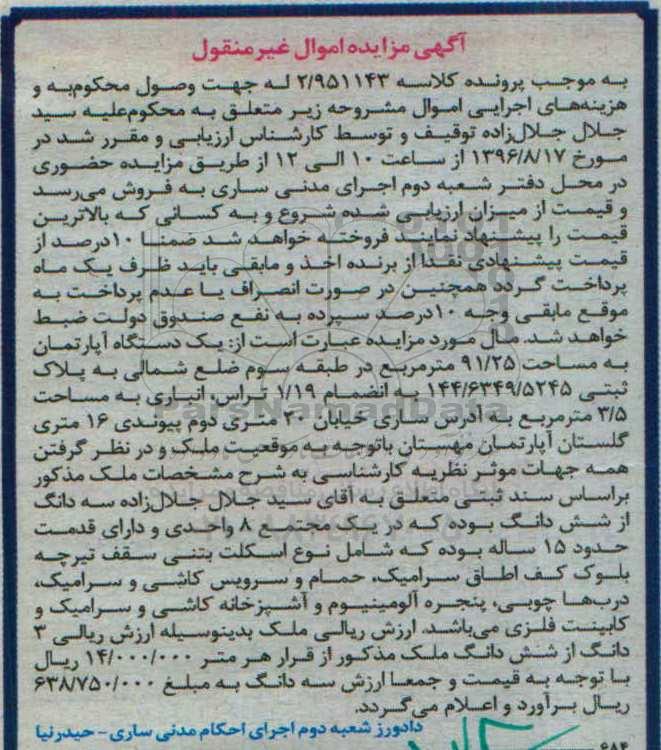 آگهی مزایده اموال غیر منقول
به موجب پرونده کلاسه ۲/۹۵۱۱۴۳ له جهت وصول محکوم‌به و
هزینه‌های اجرایی اموال مشروحه زیر متعلق به محکوم‌علیه سید
جلال جلال‌زاده توقیف و توسط کارشناس ارزیابی و مقرر شد در
مورخ ۱۳۹۶/۸/۱۷ از ساعت ۱۰ الی ۱۲ از طریق مزایده حضوری
در محل دفتر شعبه دوم اجرای مدنی ساری به فروش می‌رسد
و قیمت از میزان ارزیابی شده شروع و به کسانی که بالاترین
قیمت را پیشنهاد نمایند فروخته خواهد شد ضمنا ۱۰درصد از
قیمت پیشنهادی نقدا از برنده اخذ و مابقی باید ظرف یک ماه
پرداخت گردد همچنین در صورت انصراف یا عدم پرداخت به
موقع مابقی وجه ۱۰درصد سپرده به نفع صندوق دولت ضبط
خواهد شد. مال مورد مزایده عبارت است از: یک دستگاه آپارتمان
به مساحت ۹۱/۲۵ مترمربع در طبقه سوم ضلع شمالی به پلاک
ثبتی ۱۴۴/۶۳۴۹/۵۲۴۵ به انضمام ۱/۱۹ تراس، انباری به مساحت
۳/۵ مترمربع به آدرس ساری خیابان ۳۰ متری دوم پیوندی ۱۶ متری
گلستان آپارتمان مهستان باتوجه به موقعیت ملک و در نظر گرفتن
همه جهات موثر نظریه کارشناسی به شرح مشخصات ملک مذکور
براساس سند ثبتی متعلق به آقای سید جلال جلال‌زاده سه دانگ
از شش دانگ بوده که در یک مجتمع ۸ واحدی و دارای قدمت
حدود ۱۵ ساله بوده که شامل نوع اسکلت بتنی سقف تیرچه
بلوک کف اطاق سرامیک، حمام و سرویس کاشی و سرامیک،
درب‌ها چوبی، پنجره آلومینیوم و آشپزخانه کاشی و سرامیک و
کابینت فلزی می‌باشد. ارزش ریالی ملک بدینوسیله ارزش ریالی ۳
دانگ از شش دانگ ملک مذکور از قرار هر متر ۱۴/۰۰۰/۰۰۰ ریال
با توجه به قیمت و جمعا ارزش سه دانگ به مبلغ ۶۳۸/۷۵۰/۰۰۰
ریال برآورد و اعلام می‌گردد.
دادورز شعبه دوم اجرای احکام مدنی ساری - حیدرنیا
ParsNamadData